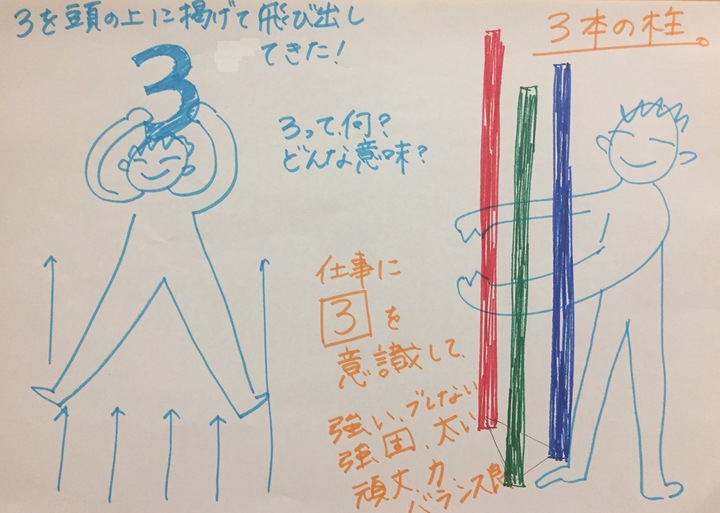 3を頭の上に掲げて飛び出し
てきた!
3
3って、何?
どんな意味?
3本の柱。
仕事に
3を
意識して、
強い、ブレない
強固、太い
頑丈、力、
バランス良